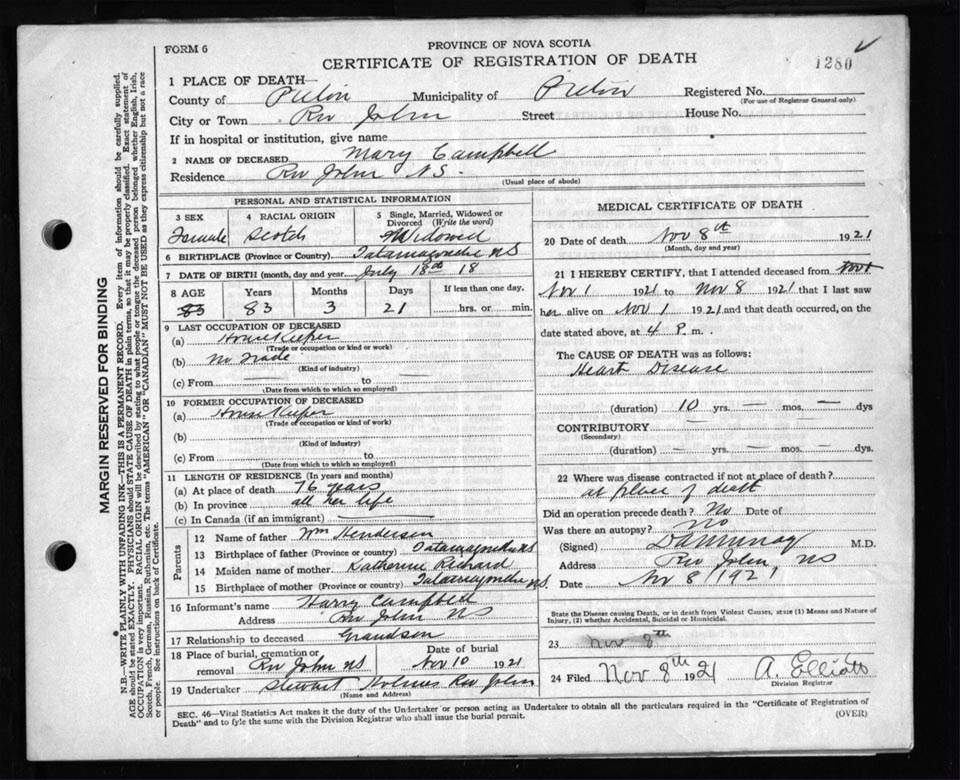 FORM 6
PROVINCE OF NOVA SCOTIA
CERTIFICATE OF REGISTRATION OF DEATH
1280
1 PLACE OF DEATH—
County of Pictou Municipality of Pictou Registered No.
(For use of Registrar General only)
City or Town Riv John Street House No.
If in hospital or institution, give name
2 NAME OF DECEASED Mary Campbell
Residence Riv John N.S.
(Usual place of abode)
PERSONAL AND STATISTICAL INFORMATION
3 SEX
Female
4 RACIAL ORIGIN
Scotch
5 Single, Married, Widowed or Divorced (Write the word)
Widowed
6 BIRTHPLACE (Province or Country) NS
7 DATE OF BIRTH (month, day and year) July 18th 18
8 AGE Years Months Days If less than one day,
83 83 3 21 hrs. or min.
9 LAST OCCUPATION OF DECEASED
(a) House Keeper
(Trade or occupation or kind or work)
(b) No Trade
(Kind of industry)
(c) From — to —
(Date from which to which so employed)
10 FORMER OCCUPATION OF DECEASED
(a) House Keeper
(Trade of occupation or kind of work)
(b)
(Kind of industry)
(c) From to
(Date from which to which so employed)
11 LENGTH OF RESIDENCE (In years and months)
(a) At place of death 76 years
(b) In province all her life
(c) In Canada (if an immigrant)
Parents
12 Name of father Wm Henderson
13 Birthplace of father (Province or country) NS
14 Maiden name of mother Katherine Richard
15 Birthplace of mother (Province or Country) NS.
16 Informant's name Harry Campbell
Address Riv John NS
17 Relationship to deceased Grandson
18 Place of burial, cremation or removal Riv John NS
Date of burial
Nov 10 1921
19 Undertaker Stewart Holmes Riv John
(Name and Address)
MEDICAL CERTIFICATE OF DEATH
20 Date of death Nov 8th 1921
(Month, day and year)
21 I HEREBY CERTIFY, that I attended deceased from
Nov 1 1921 to Nov 8 1921 that I last saw
her alive on Nov 1 1921 and that death occurred, on the
date stated above, at 4 P. m.
The CAUSE OF DEATH was as follows:
Heart Disease
(duration) 10 yrs. — mos. — dys
CONTRIBUTORY —
(Secondary)
(duration) — yrs. — mos. — dys.
22 Where was disease contracted if not at place of death?
at place of death
Did an operation precede death? No Date of
Was there an autopsy? no
(Signed) M.D.
Address Riv John, NS
Date Nov 8/1921
State the Disease causing Death, or in death from Violent Causes, state (1) Means and Nature of
Injury, (2) whether Accidental, Suicidal or Homicidal.
23 Nov 8th
24 Filed Nov 8th 1921 A. Elliott
Division Registrar
SEC. 46—Vital Statistics Act makes it the duty of the Undertaker or person acting as Undertaker to obtain all the particulars required in the "Certificate of Registration of
Death" and to fyle the same with the Division Registrar who shall issue the burial permit.
(OVER)
MARGIN RESERVED FOR BINDING
N.B.—WRITE PLAINLY WITH UNFADING INK—THIS IS A PERMANENT RECORD. Every item of information should be carefully supplied.
AGE should be stated EXACTLY. PHYSICIANS should STATE CAUSE OF DEATH in plain terms, so that it may be properly classified. Exact statement of
OCCUPATION is very important. RACIAL ORIGIN will be described by stating to what people or tongue the deceased person belonged whether English, Irish,
Scotch, French, German, Russian, Ruthenian, etc. The terms "AMERICAN" OR "CANADIAN" MUST NOT BE USED as they express citizenship but not a race
or people. See instructions on back of Certificate.